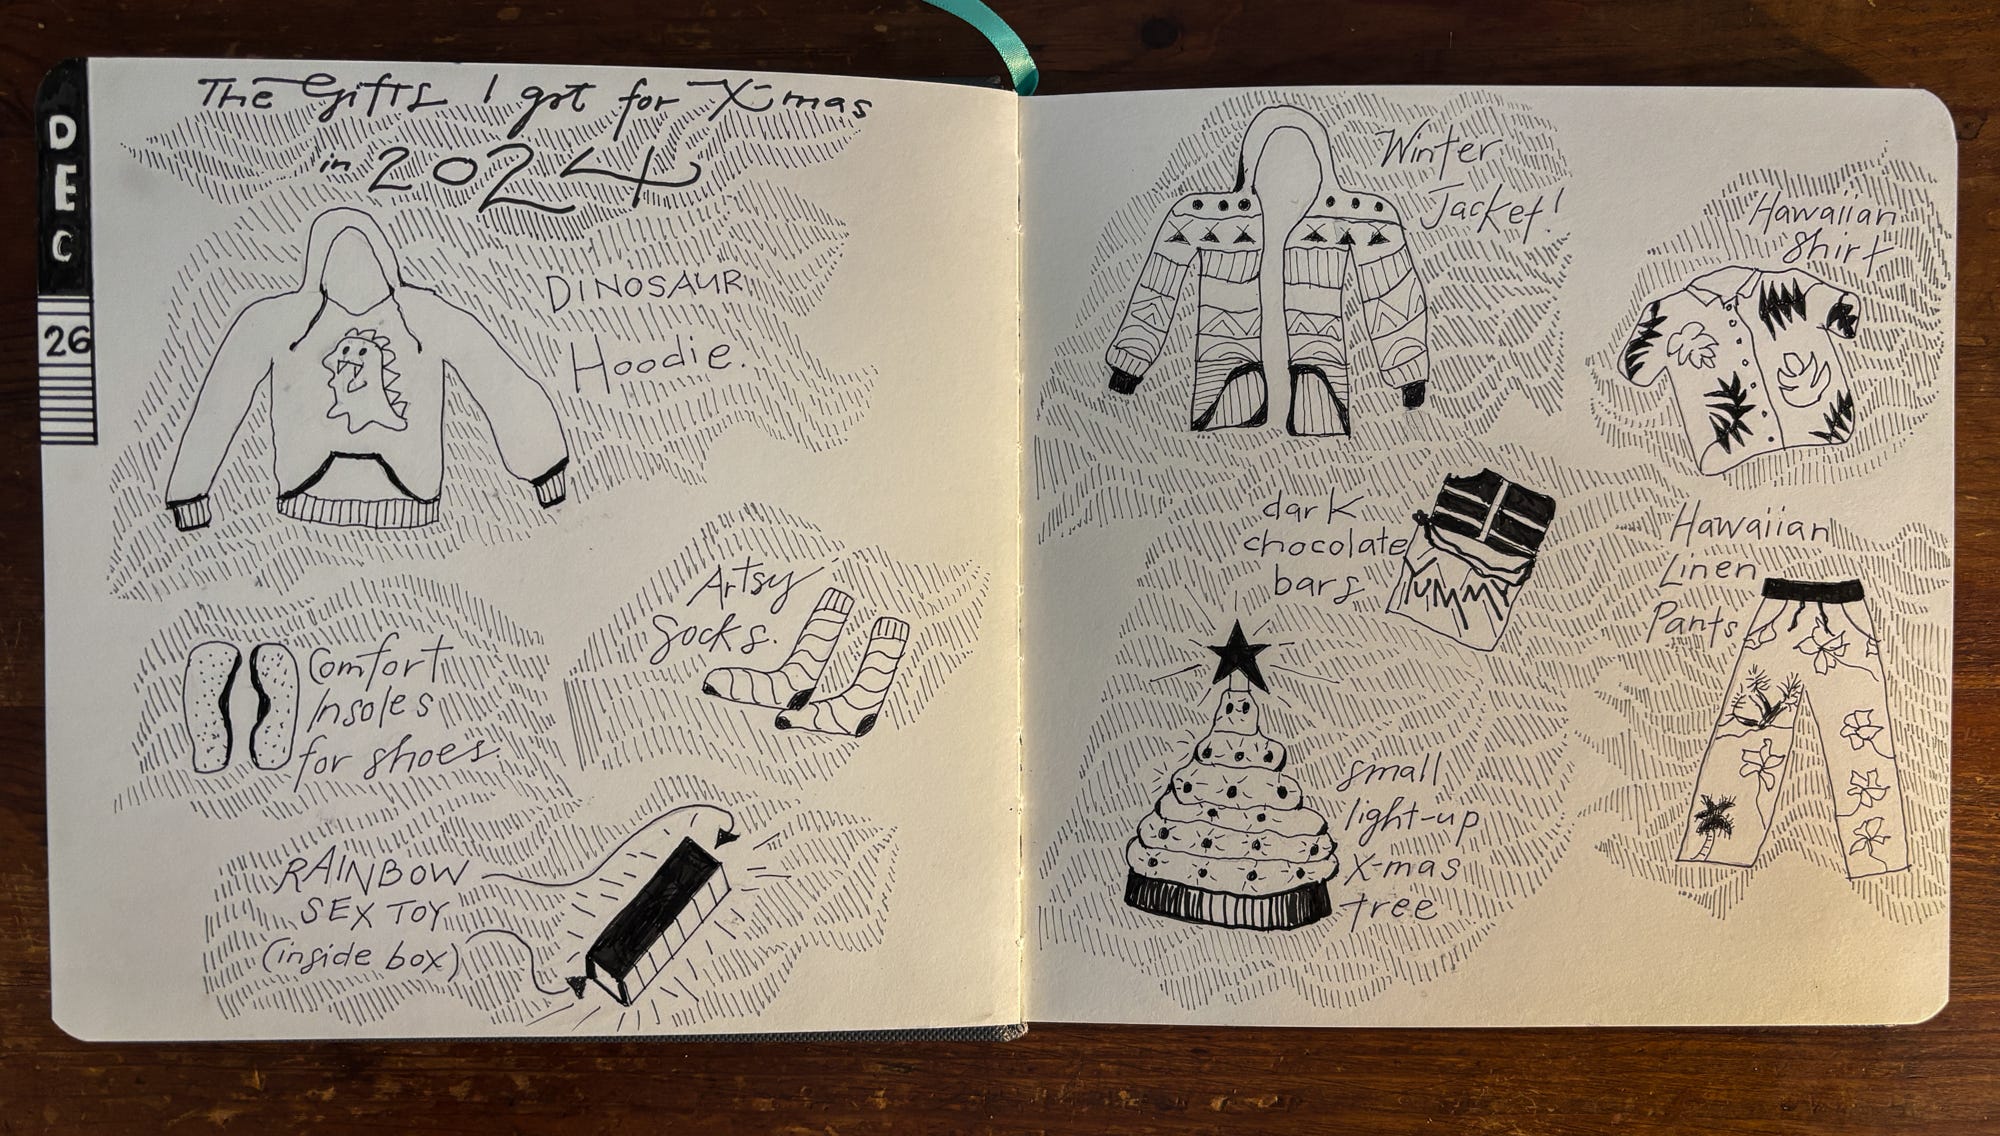 The Gifts I got for X-mas
in 2024
DEC
26
DINOSAUR
Hoodie.
Comfort
Insoles
for shoes.
Artsy
Socks.
RAINBOW
SEX TOY
(inside box)
Winter
Jacket!
Hawaiian
Shirt
dark
chocolate
bars
YUMMY
Hawaiian
Linen
Pants
small
light-up
X-mas
tree